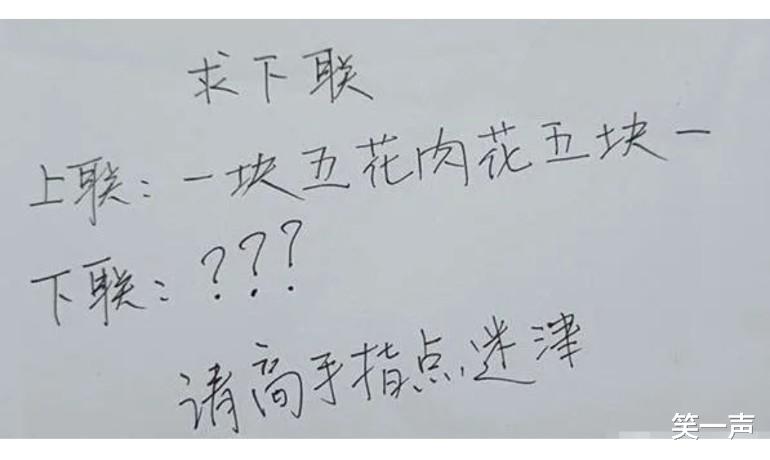 求下联
上联：一块五花肉花五块一
下联：？？？
请高手指点迷津
笑一声